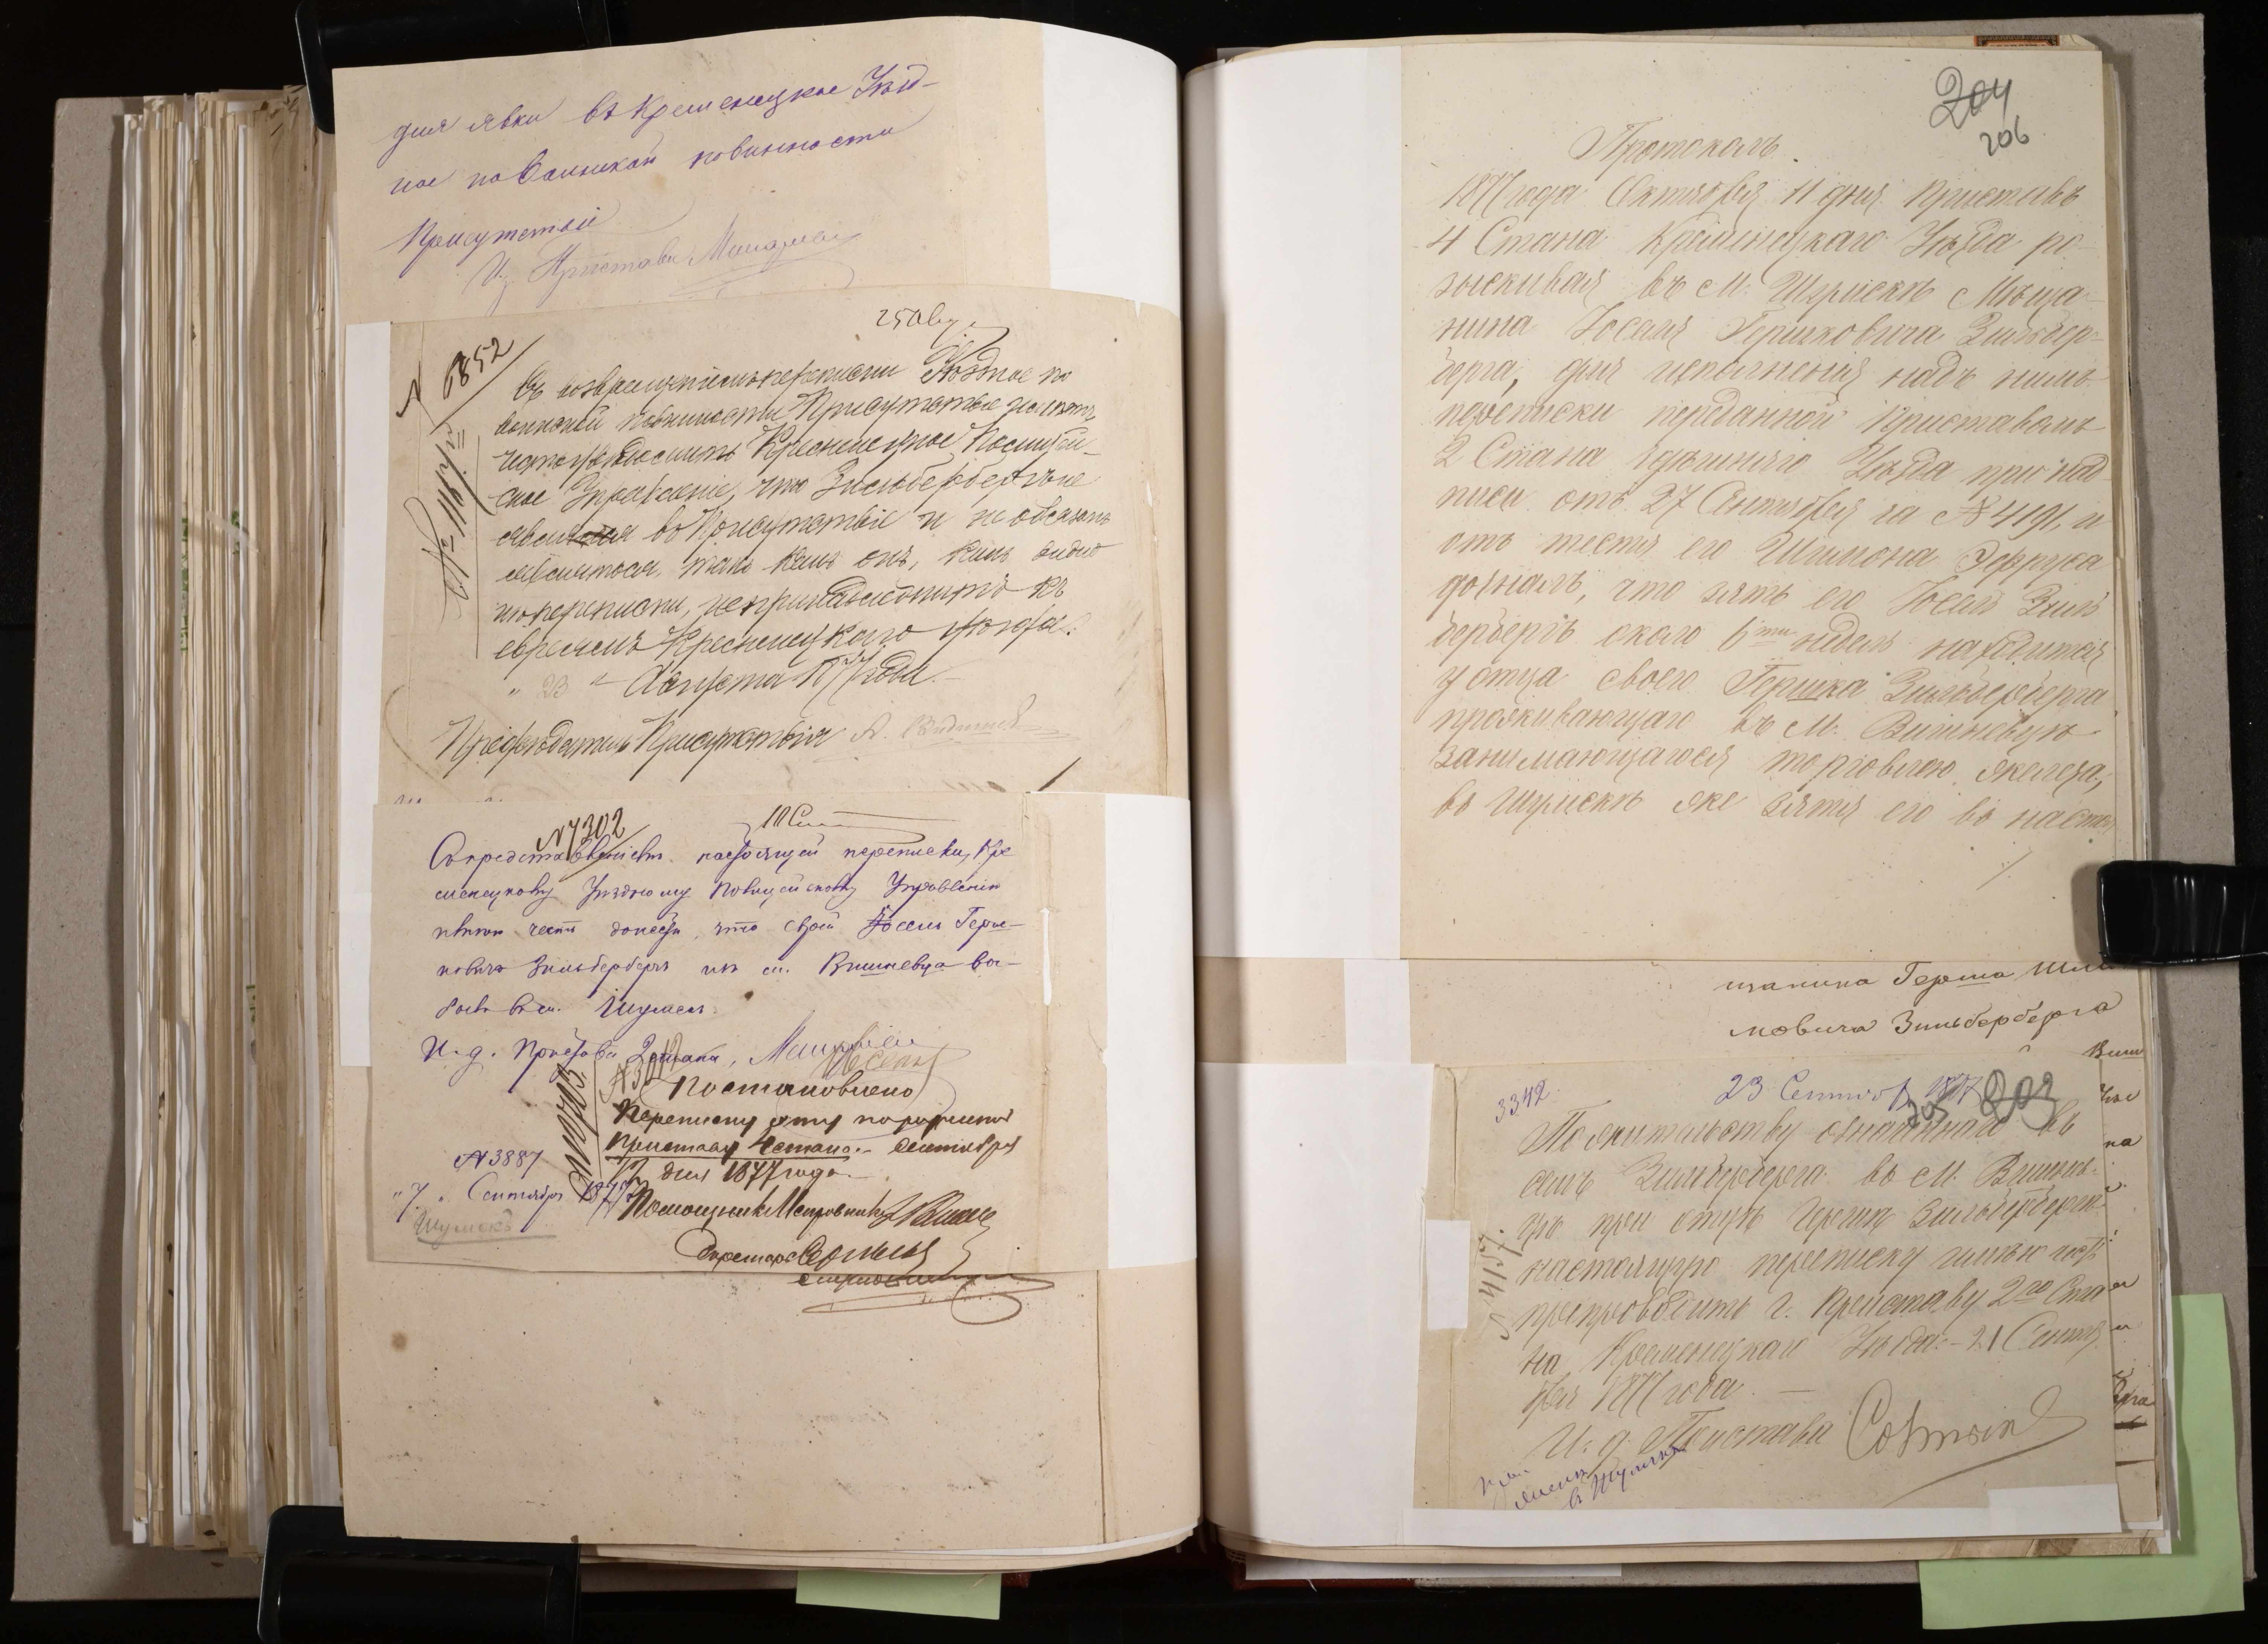 для явки въ Кременецкое Уѣзд-
ное по Воинской повинности
Присутствіе
И. Пристава
25 Авг.
№ 6852
Съ возвращеніемъ переписки Уѣздное по
воинской повинности Присутствіе имѣетъ
честь увѣдомить Кременецкое Полицей-
ское Управленіе, что Зильберберг не
явился въ Присутствіе и не обязанъ
являться, такъ какъ онъ, какъ видно
изъ переписки, не принадлежитъ къ
евреямъ Кременецкаго уѣзда.
" 23 " Августа 1877 года.
Предсѣдатель Присутствія
№ 7302
Съ представленіемъ настоящей переписки, Кре
менецкому Уѣздному Полицейскому Управленію
имѣю честь донести, что еврей Іосель Герш-
ковичъ Зильбербергъ изъ м. Вишневца вы-
былъ въ м. Шумскъ.
И. д. Пристава 2 стана,
Постановлено
Переписку эту
Приставу 4 стана. Сентября
12 дня 1877 года
№ 3887
"7" Сентября 1877
Шумскъ
Помощникъ Исправника
Секретарь
204
206
Протоколъ.
1877 года Октября 11 дня Приставъ
4 Стана Кременецкаго Уѣзда ро-
зыскивая въ М. Шумскѣ Мѣща-
нина Іоселя Гершковича Зильбер-
берга, для исполненія надъ нимъ
переписки переданной Приставомъ
2 Стана здѣшняго Уѣзда при над-
писи отъ 27 Сентября за № 4191, и
отъ тестя его Шимона Эфруса
дозналъ, что зять его Іосель Зиль
бербергъ около 6ти недель находится
у отца своего Гершка Зильберберга
проживающаго въ М. Вишневцѣ
занимающагося торговлею железа,
въ Шумскѣ же зятя его въ настоя
щанина Герша
мовича Зильберберга
3342
23 Сентяб 1877
205 203
По жительству означеннаго Іо
селя Зильберберга въ М. Вишнев-
цѣ при отцѣ Гершкѣ Зильбербергѣ
настоящую переписку имѣю честь
препроводить г. Приставу 2го Ста
на Кременецкаго Уѣзда.- 21 Сентя
бря 1877 года. —
И. д. Пристава